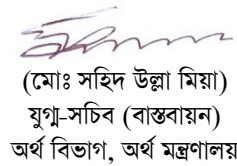 (মোঃ সহিদ উল্লা মিয়া)
যুগ্ম-সচিব (বাস্তবায়ন)
অর্থ বিভাগ, অর্থ মন্ত্রণালয়